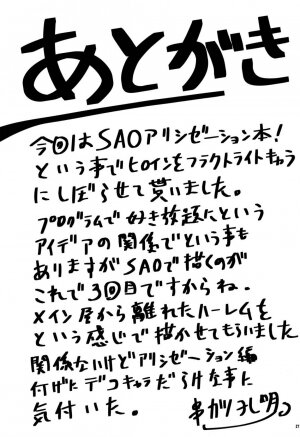 あとがき
今回はSAOアリシゼーション本!
という事でヒロインをフラクトライトキャラ
にしぼらせて貰いました。
プログラムで好き放題にという
アイデアの関係でという事も
ありますがSAOで描くのが
これで3回目ですからね。
メイン屋から離れたハーレムを
という感じで描かせてもらいました
関係ないけどアリシゼーション編
付けにデコキャラだらけな事に
気付いた。